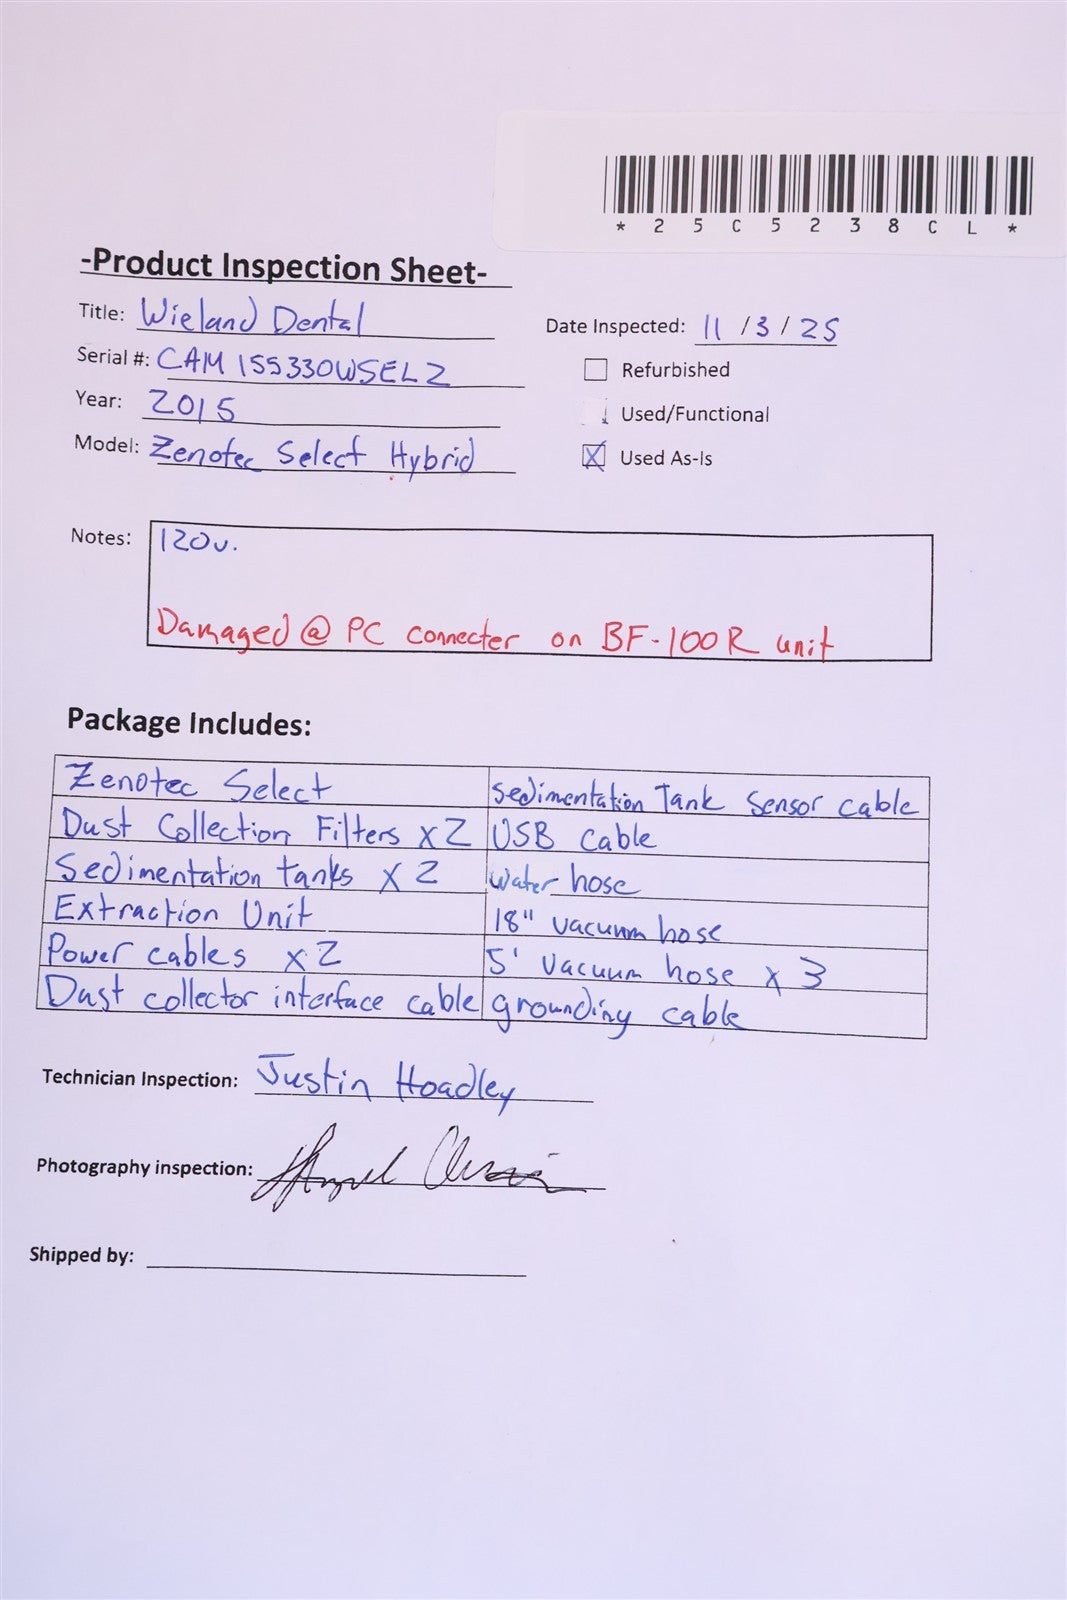 * 2 5 C 5 2 3 8 C L *
-Product Inspection Sheet-
Title: Wieland Dental
Date Inspected: 11 / 3 / 25
Serial #: CAM 155330WSELZ
Refurbished
Year: 2015
Used/Functional
Model: Zenotec Select Hybrid
X Used As-Is
Notes: 120v.
Damaged @ PC connecter on BF-100R unit
Package Includes:
Zenotec Select Sedimentation Tank Sensor cable
Dust Collection Filters x2 USB Cable
Sedimentation tanks x 2 Water hose
Extraction Unit 18" vacuum hose
Power cables x2 5' Vacuum hose x 3
Dust collector interface cable grounding cable
Technician Inspection: Justin Hoadley
Photography inspection:
Shipped by: